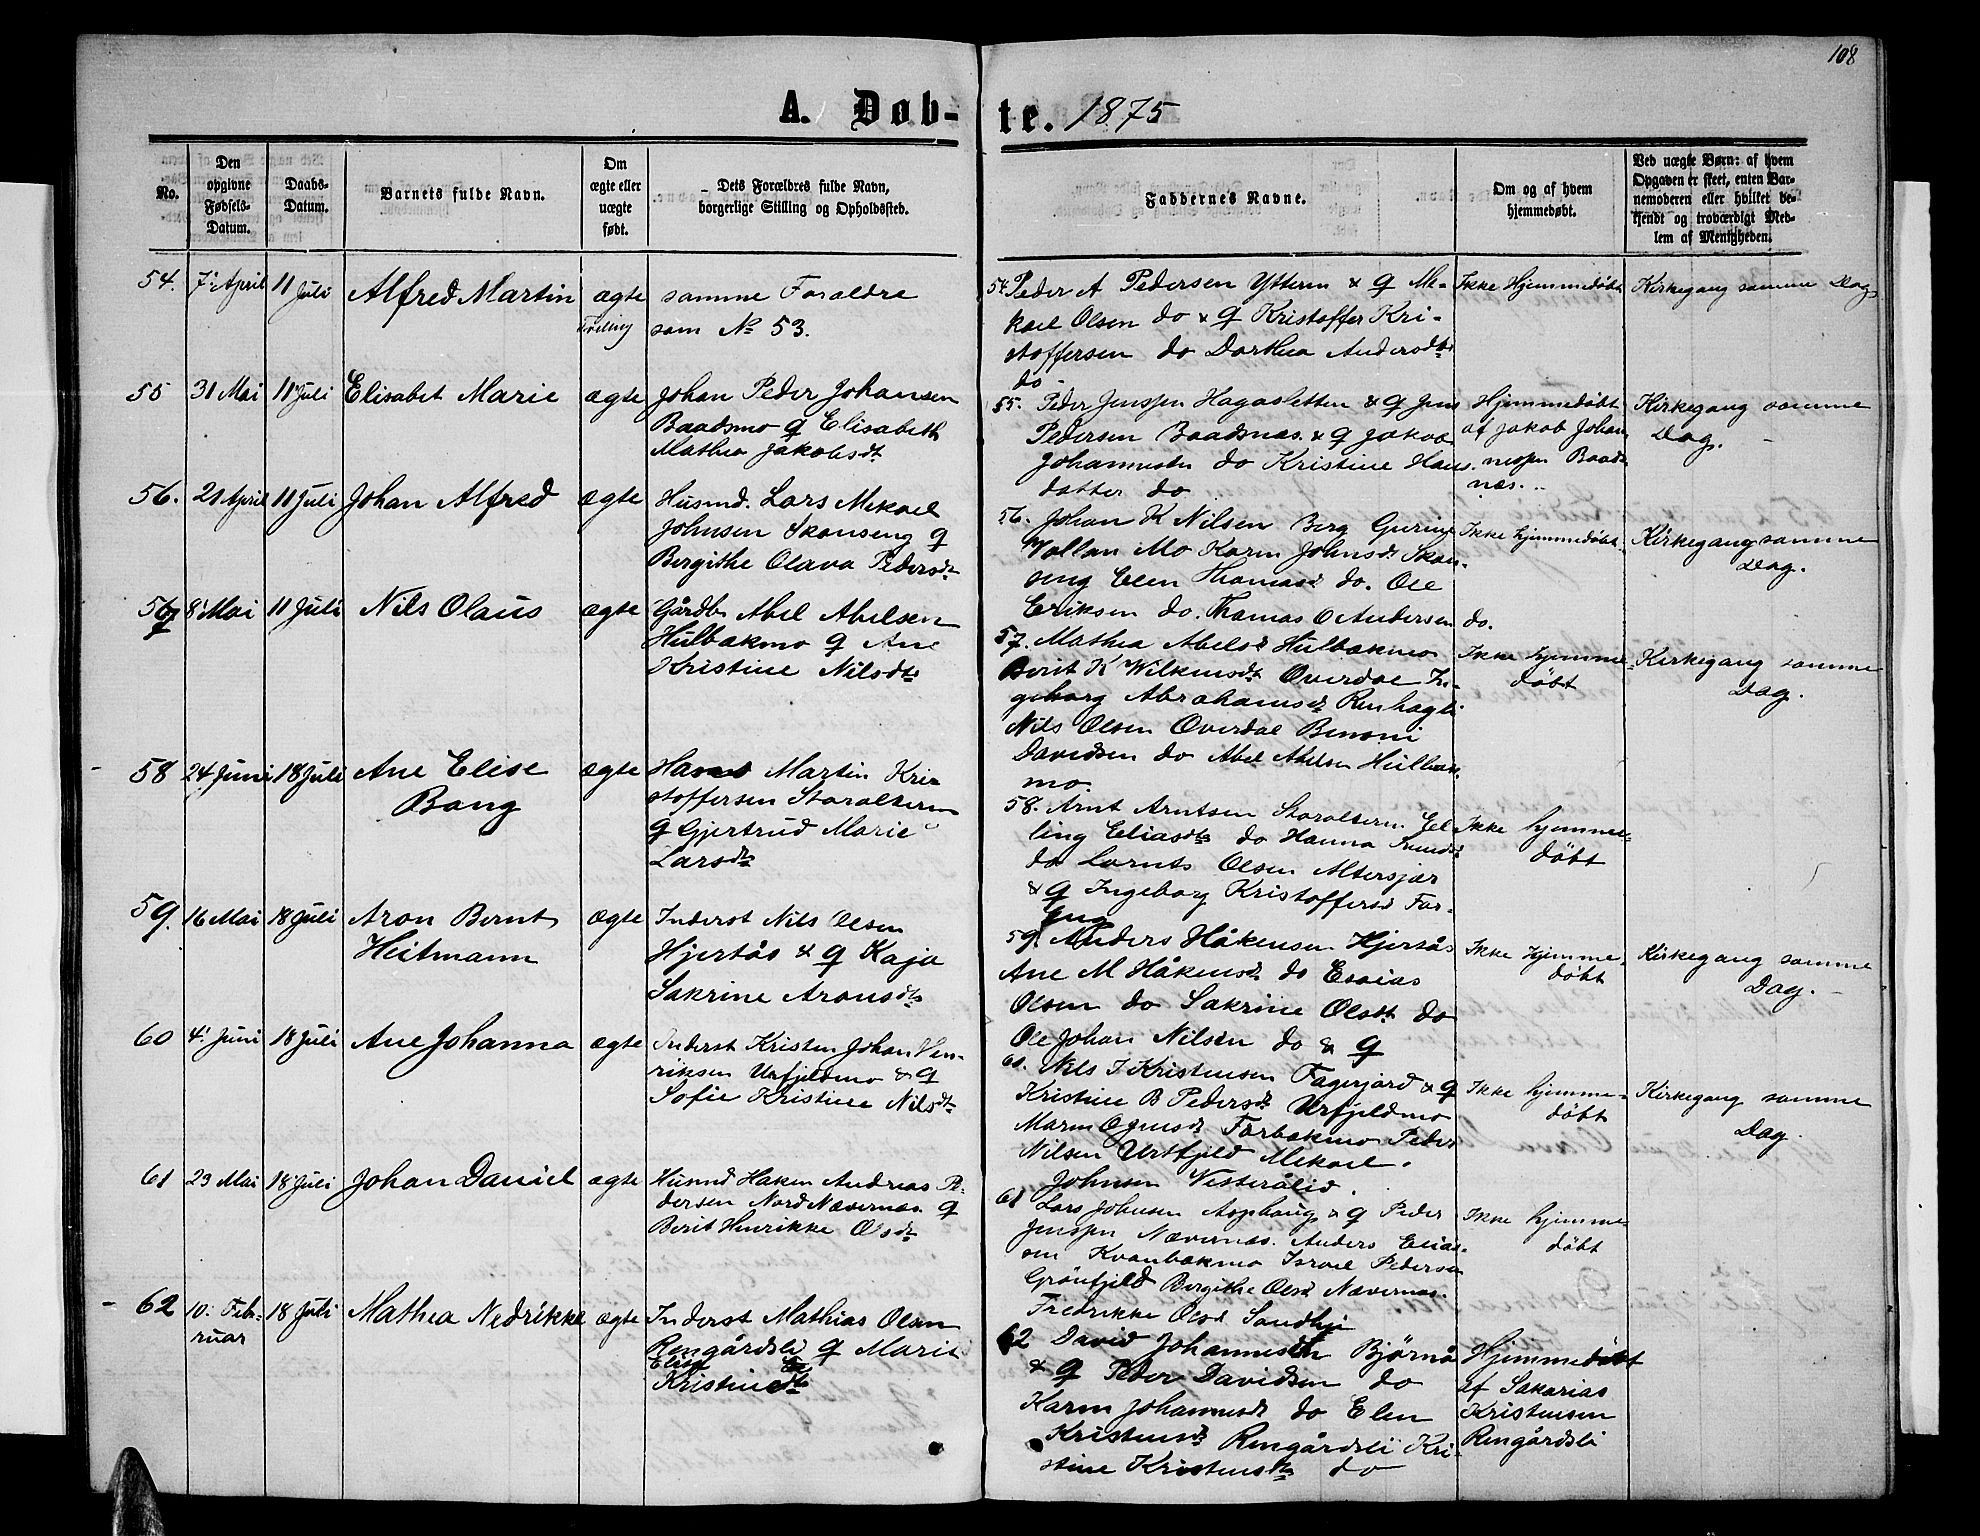 108
A. Døb-
te. 1875
No.
Den
opgivne
Fødsels-
Datum.
Daabs-
Datum.
Barnets fulde Navn.
Om
ægte eller
uægte
født.
Dets Forældres fulde Navn,
borgerlige Stilling og Opholdssted.
Faddernes Navne.
Om og af hvem
hjemmedøbt.
Ved uægte Børn: af hvem
Opgaven er skeet, enten Bar-
nemoderen eller hvilket be-
kjendt og troværdigt Med-
lem af Menigheden.
54. 7. April 11 Juli Alfred Martin ægte
Tvilling
samme Foraldre
som No 53.
54. Peder A Pedersen Ytteren & q Me-
kael Olsen do & q Kristoffer Kri-
stoffersen do Dorthea Andersdtr
do
Ikke Hjemmedøbt
Kirkegang samme Dag
55 31 Mai 11 Juli Elisabet Marie ægte
Johan Peder Johansen
Baadsmo q Elisabeth
Mathea Jakobsdt
55. Peder Jenssen Hagasletten & q Jens
Pedersen Baadsnæs. & q Jakob
Johannesen do Kristine Hans
datter do
Hjemmedøbt
af Jakob Johan
nessen Baads
næs.
Kirkegang samme
Dag.
56. 21 April 11 Juli Johan Alfred ægte
Husmd. Lars Mekael
Johnsen Skonseng q
Bergithe Olava Pedersdt
56. Johan K Nilsen Berg Guring
Vollan Mo Karen Johnsd Skon-
seng Elen Thomasd do. Ole
Eriksen do. Thomas O Andersen do.
Ikke hjemmedøbt.
Kirkegang samme
Dag.
57 8. Mai 11 Juli Nils Olaus ægte
Gårdbr Abel Abelsen
Hulbækmo q Ane
Kristine Nilsdt
57. Mathea Abelsd Hulbækmo
Berit K Wilkensdt Overdal In-
geborg Abrahamsd Renhagli
Nils Olsen Overdal Benoni
Davidsen do Abel Abelsen Hulbæk-
mo.
Ikke hjemme-
døbt
Kirkegang samme
Dag.
58 24 Juni 18 Juli Ane Elise
Bang
ægte
Hans Martin Kri-
stoffersen Storalteren
q Gjertrud Marie
Larsdt
58. Arnt Arntsen Storalteren El-
ling Eliasdt do Hanna Knudsd
do Lornts Olsen Altersjør
& q Ingeborg Kristoffersd For-
Ikke hjemme-
døbt
59. 16 Mai 18 Juli Aron Bernt
Heitmann
ægte
Inderst Nils Olsen
Hjertås & q Kaja
Sakrine Aronsdt
59. Anders Håkensen Hjertås
Ane M Håkensd do Esaias
Olsen do Sakrine Olsdt do
Ole Johan Nilsen do & q
Ikke hjemme-
døbt
Kirkegang samme
Dag.
60 4. Juni 18 Juli Ane Johanna ægte
Inderst Kristen Johan Hen-
riksen Urfjeldmo & q
Sofie Kristine Nilsdt
60. Nils J Kristensen Fagerjord & q
Kristine B Pedersd Urfjeldmo
Maren Ogensd Forbækmo Peder
Nilsen Urtfjeld Mekael
Johnsen Vesterålid.
Ikke hjemme-
døbt
Kirkegang samme
Dag.
61 23 Mai 18 Juli Johan Daniel ægte
Husmd Haken Andreas Pe-
dersen Nord Nævernæs q
Berit Henrikke Olsdt
61 Lars Johnsen Asphaug & q Peder
Jenssen Nævernæs. Anders Elias-
sen Kvanbækmo Israel Pedersen
Grönfjeld Bergithe Olsd Nævernæs.
Fredrikke Olsd Sandhei
Ikke hjemme-
døbt
62 10. Feb-
ruar
18 Juli Mathea Nedrikke ægte
Inderst Mathias Olsen
Rengårdsli q Marie
Elise
Kristinedt
62 David Johannesen Bjørnå
& q Peder Davidsen do
Karen Johannesd do Elen
Kristensd Rengårdsli Kri-
stine Kristensdt do
Hjemmedøbt
af Sakarias
Kristensen
Rengårdsli